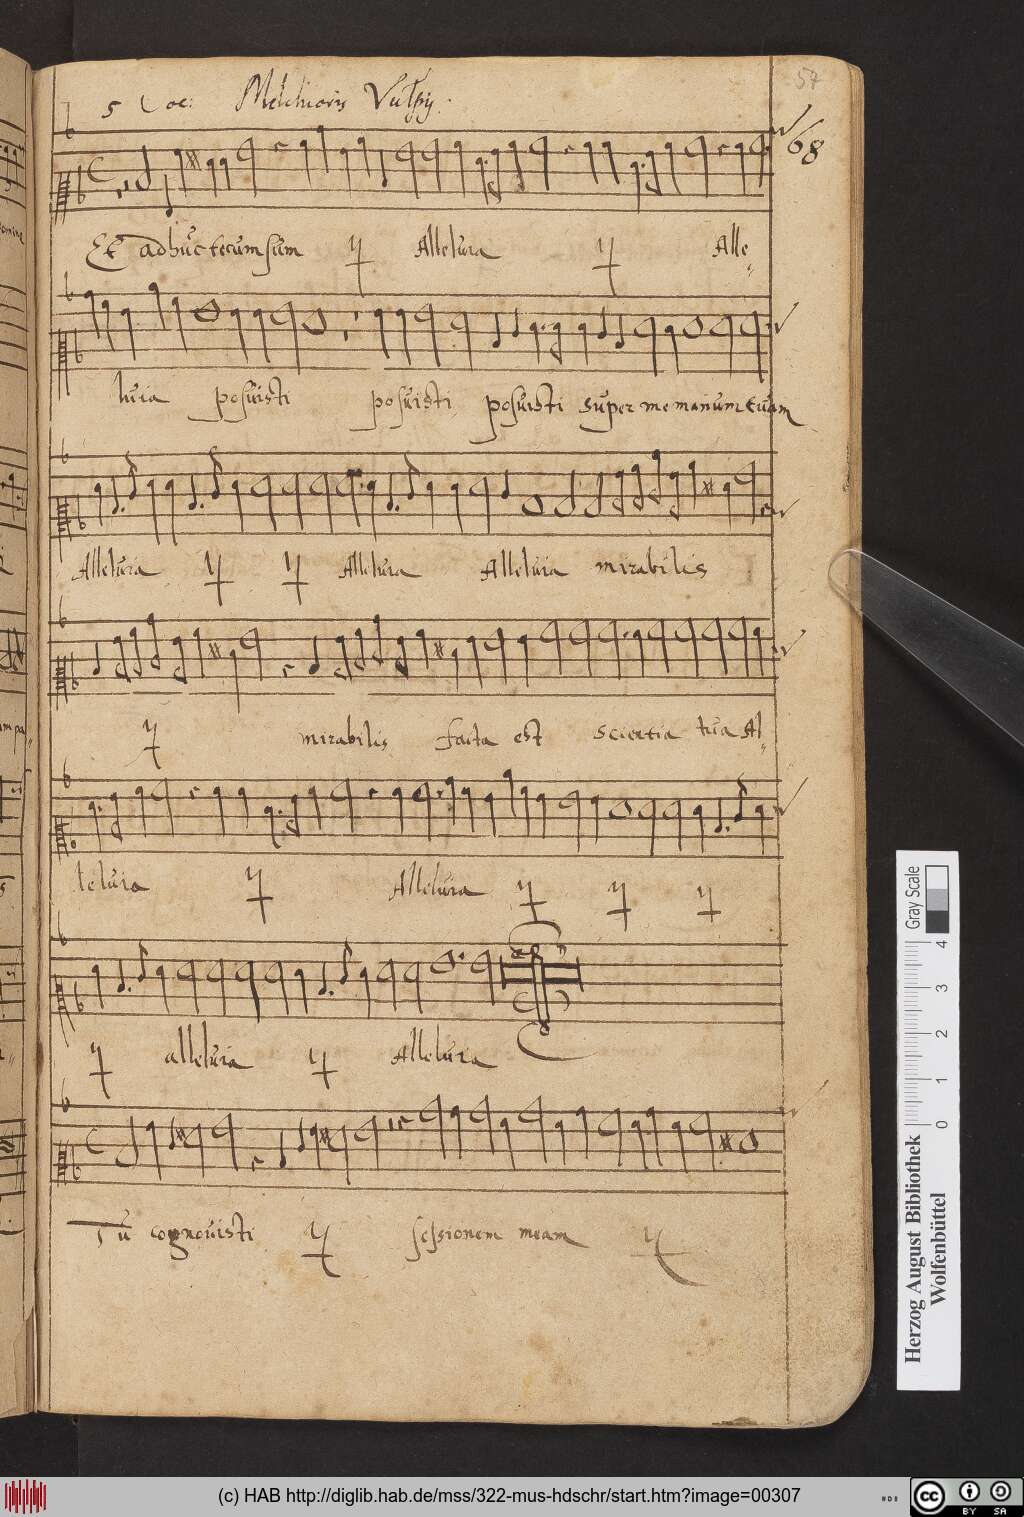 57
5 Voc: Melchioris Vulpij.
68
Et adhuc tecum sum ij Alleluia ij Alle„
luia posuisti posuisti posuisti super me manum tuam
Alleluia ij ij Alleluia Alleluia mirabilis
ij mirabilis facta est scientia tua Al„
leluia ij Alleluia ij ij ij
ij alleluia ij Alleluia
Tu cognouisti ij sessionem meam ij
Gray Scale
0 1 2 3 4
Herzog August Bibliothek
Wolfenbüttel
(c) HAB http://diglib.hab.de/mss/322-mus-hdschr/start.htm?image=00307
cc BY SA